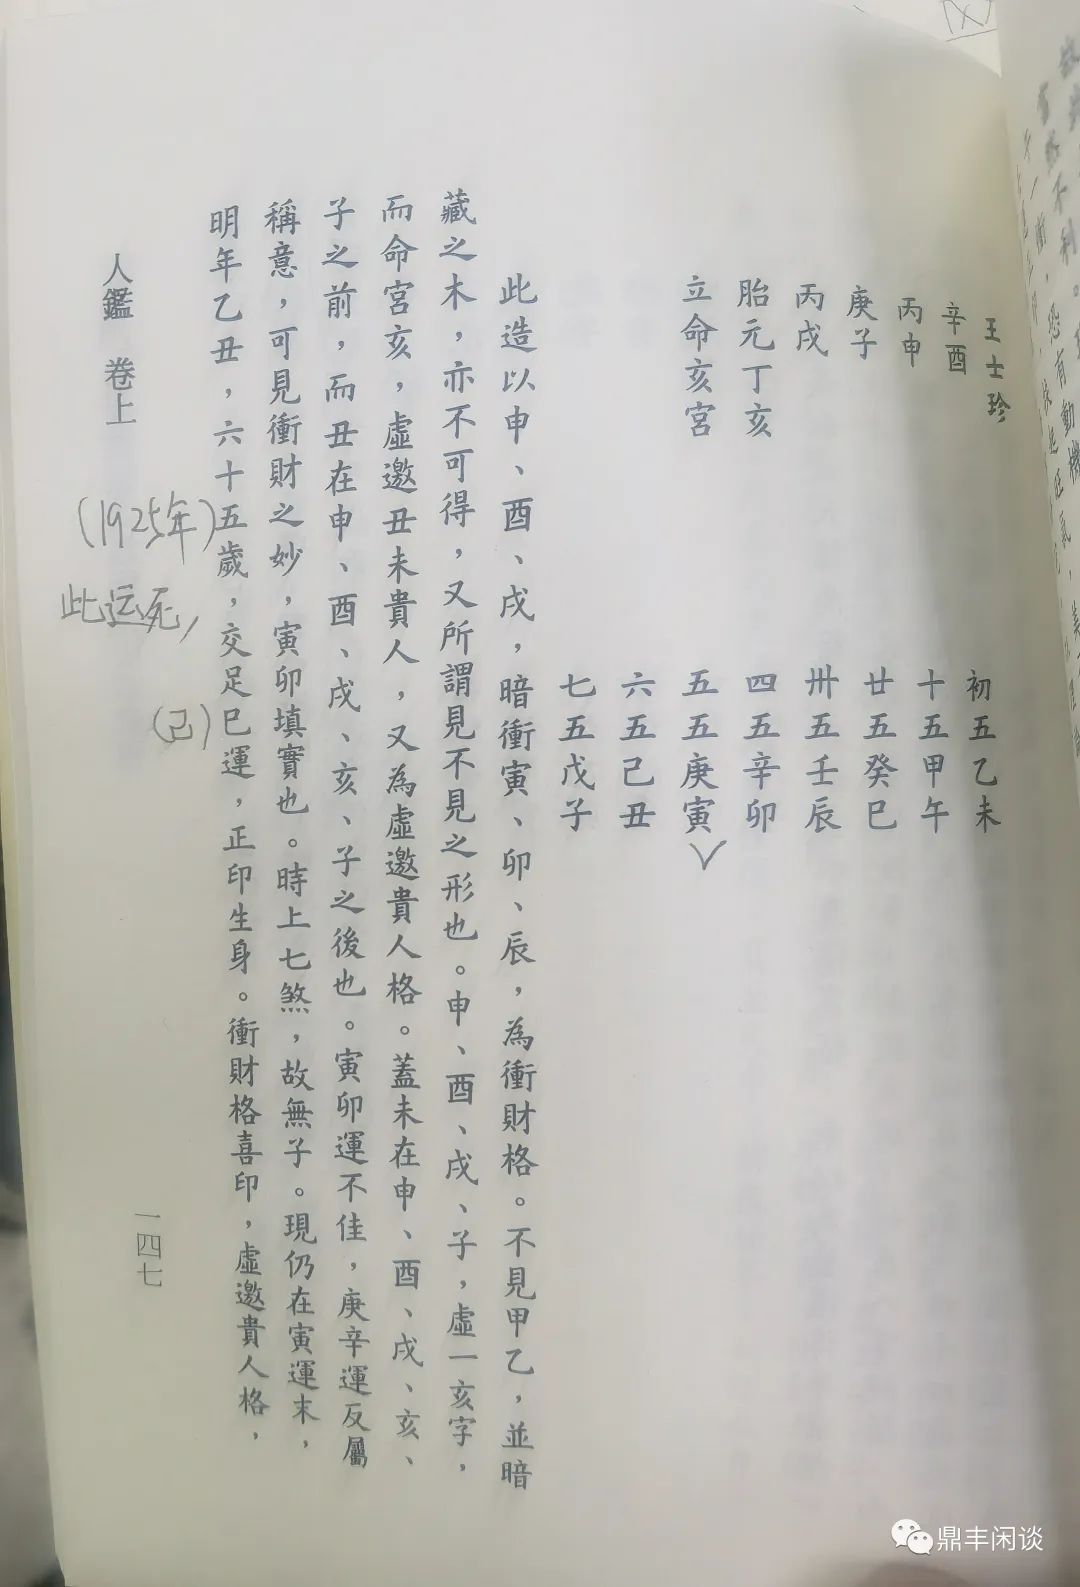 王士珍
辛酉
丙申
庚子
丙戌
胎元丁亥
立命亥宮
初五乙未
十五甲午
廿五癸巳
卅五壬辰
四五辛卯
五五庚寅
六五己丑
七五戊子
此造以申、酉、戌，暗衝寅、卯、辰，為衝財格。不見甲乙，並暗
藏之木，亦不可得，又所謂見不見之形也。申、酉、戌、子，虛一亥字，
而命宮亥，虛邀丑未貴人，又為虛邀貴人格。蓋未在申、酉、戌、亥、
子之前，而丑在申、酉、戌、亥、子之後也。寅卯運不佳，庚辛運反屬
稱意，可見衝財之妙，寅卯填實也。時上七煞，故無子。現仍在寅運末，
明年乙丑，六十五歲，交足巳運，正印生身。衝財格喜印，虛邀貴人格，
(1925年)
此运死,
(己)
人鑑 卷上
一四七
鼎丰闲谈